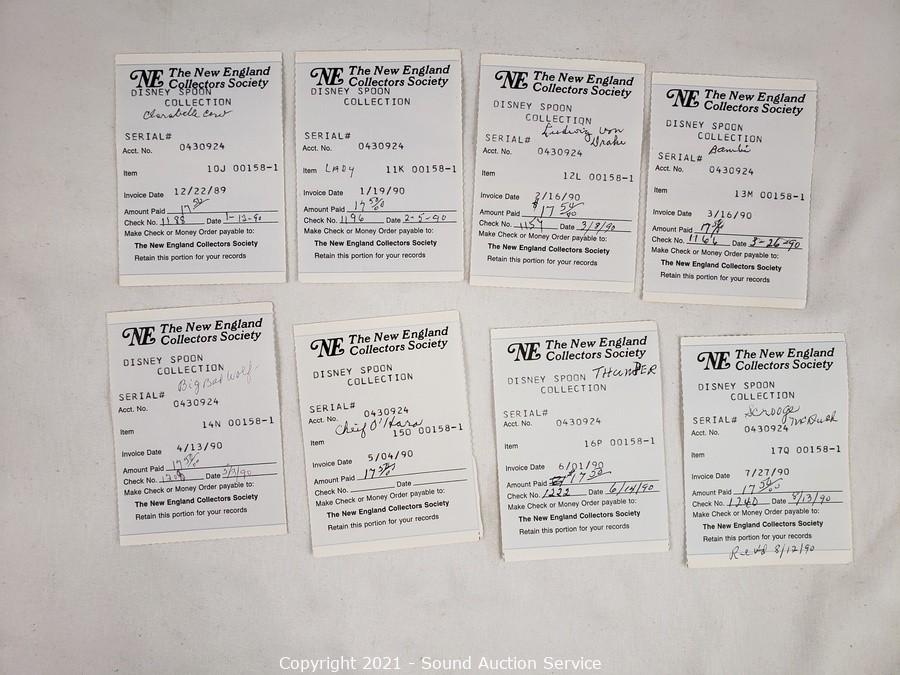 NE The New England
Collectors Society
DISNEY SPOON
COLLECTION
Clarabelle Cow
SERIAL#
Acct. No. 0430924
Item 10J 00158-1
Invoice Date 12/22/89
Amount Paid 17.50
Check No. 1188 Date 1-12-90
Make Check or Money Order payable to:
The New England Collectors Society
Retain this portion for your records
NE The New England
Collectors Society
DISNEY SPOON
COLLECTION
SERIAL#
Acct. No. 0430924
Item LADY 11K 00158-1
Invoice Date 1/19/90
Amount Paid 17
Check No. 1196 Date 2-5-90
Make Check or Money Order payable to:
The New England Collectors Society
Retain this portion for your records
NE The New England
Collectors Society
DISNEY SPOON
COLLECTION
Ludwig von
SERIAL# Drake
Acct. No. 0430924
Item 12L 00158-1
Invoice Date 2/16/90
Amount Paid $17
Check No. 1157 Date 3/8/90
Make Check or Money Order payable to:
The New England Collectors Society
Retain this portion for your records
NE The New England
Collectors Society
DISNEY SPOON
COLLECTION
Bambi
SERIAL#
Acct. No. 0430924
Item 13M 00158-1
Invoice Date 3/16/90
Amount Paid 17
Check No. 1166 Date 3-26-90
Make Check or Money Order payable to:
The New England Collectors Society
Retain this portion for your records
NE The New England
Collectors Society
DISNEY SPOON
COLLECTION
Big Bad Wolf
SERIAL#
Acct. No. 0430924
Item 14N 00158-1
Invoice Date 4/13/90
Amount Paid 17
Check No. Date
Make Check or Money Order payable to:
The New England Collectors Society
Retain this portion for your records
NE The New England
Collectors Society
DISNEY SPOON
COLLECTION
SERIAL#
Acct. No. 0430924
Cheif O'Hara
Item 15O 00158-1
Invoice Date 5/04/90
Amount Paid 17
Check No. Date
Make Check or Money Order payable to:
The New England Collectors Society
Retain this portion for your records
NE The New England
Collectors Society
DISNEY SPOON THUMPER
COLLECTION
SERIAL#
Acct. No. 0430924
Item 16P 00158-1
Invoice Date 6/01/90
Amount Paid 17.50
Check No. 1222 Date 6/14/90
Make Check or Money Order payable to:
The New England Collectors Society
Retain this portion for your records
NE The New England
Collectors Society
DISNEY SPOON
COLLECTION
SERIAL# Scrooge
Acct. No. 0430924 McDuck
Item 17Q 00158-1
Invoice Date 7/27/90
Amount Paid 17
Check No. 1240 Date 8/13/90
Make Check or Money Order payable to:
The New England Collectors Society
Retain this portion for your records
Rec'd 8/12/90
Copyright 2021 - Sound Auction Service